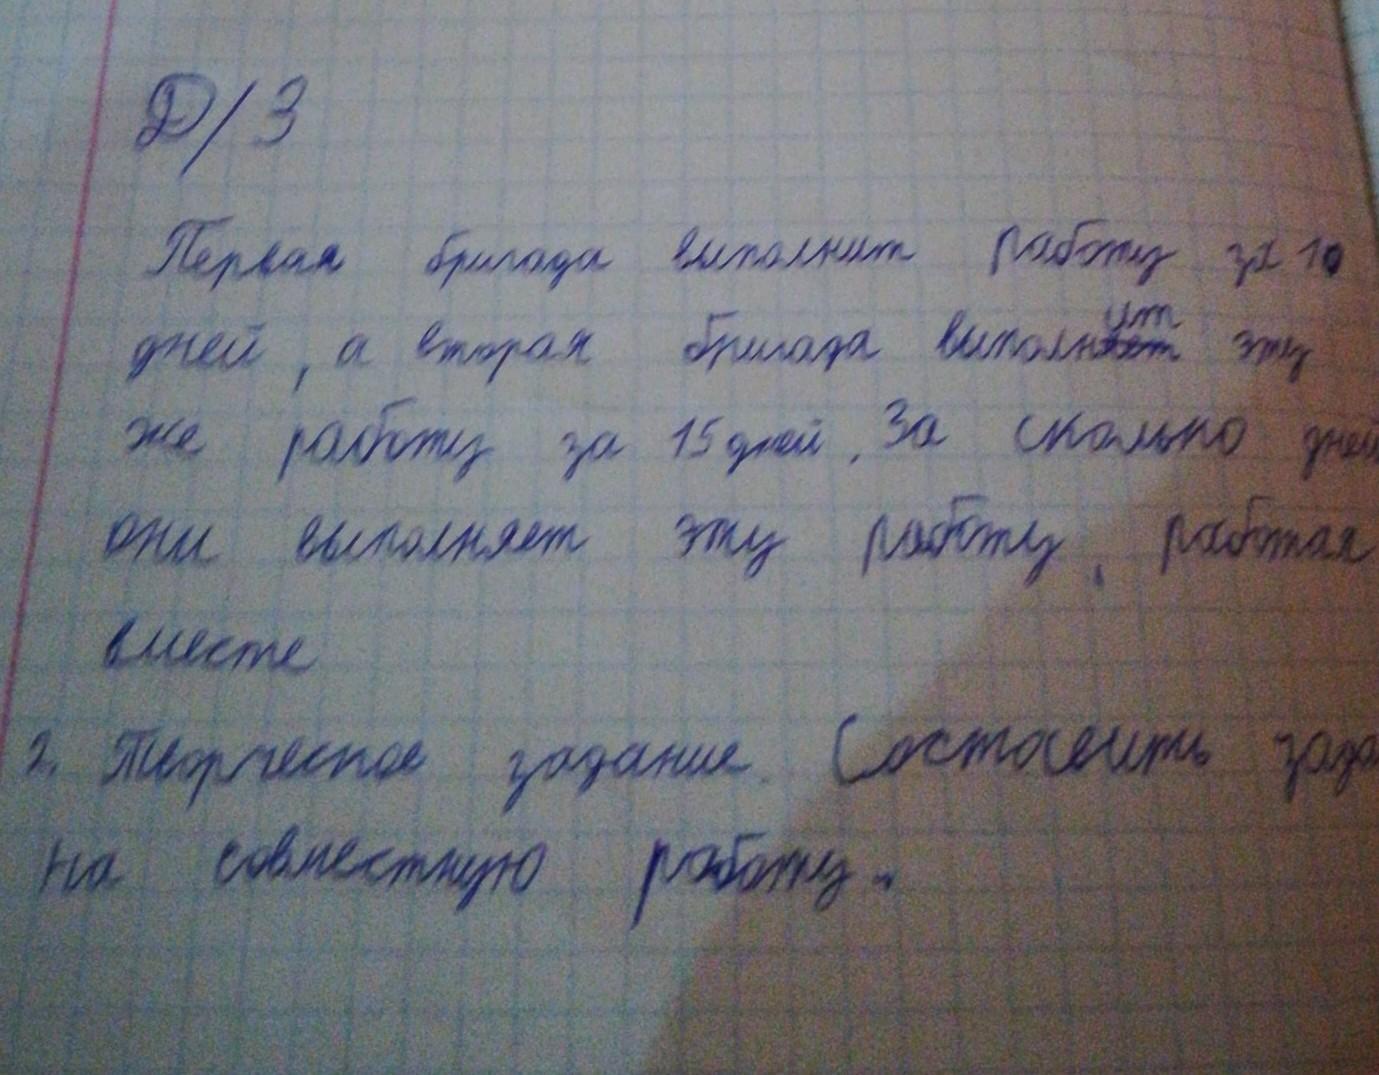 Д/З
Первая бригада выполнит работу за 10
дней, а вторая бригада выполнит эту
же работу за 15 дней. За сколько дней
они выполняет эту работу, работая
вместе
2. Творческое задание. Составить зада
на совместную работу.